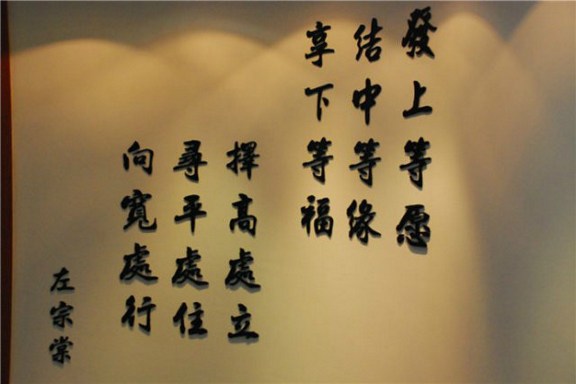 發上等愿
结中等缘
享下等福
擇高處立
尋平處住
向寬處行
左宗棠